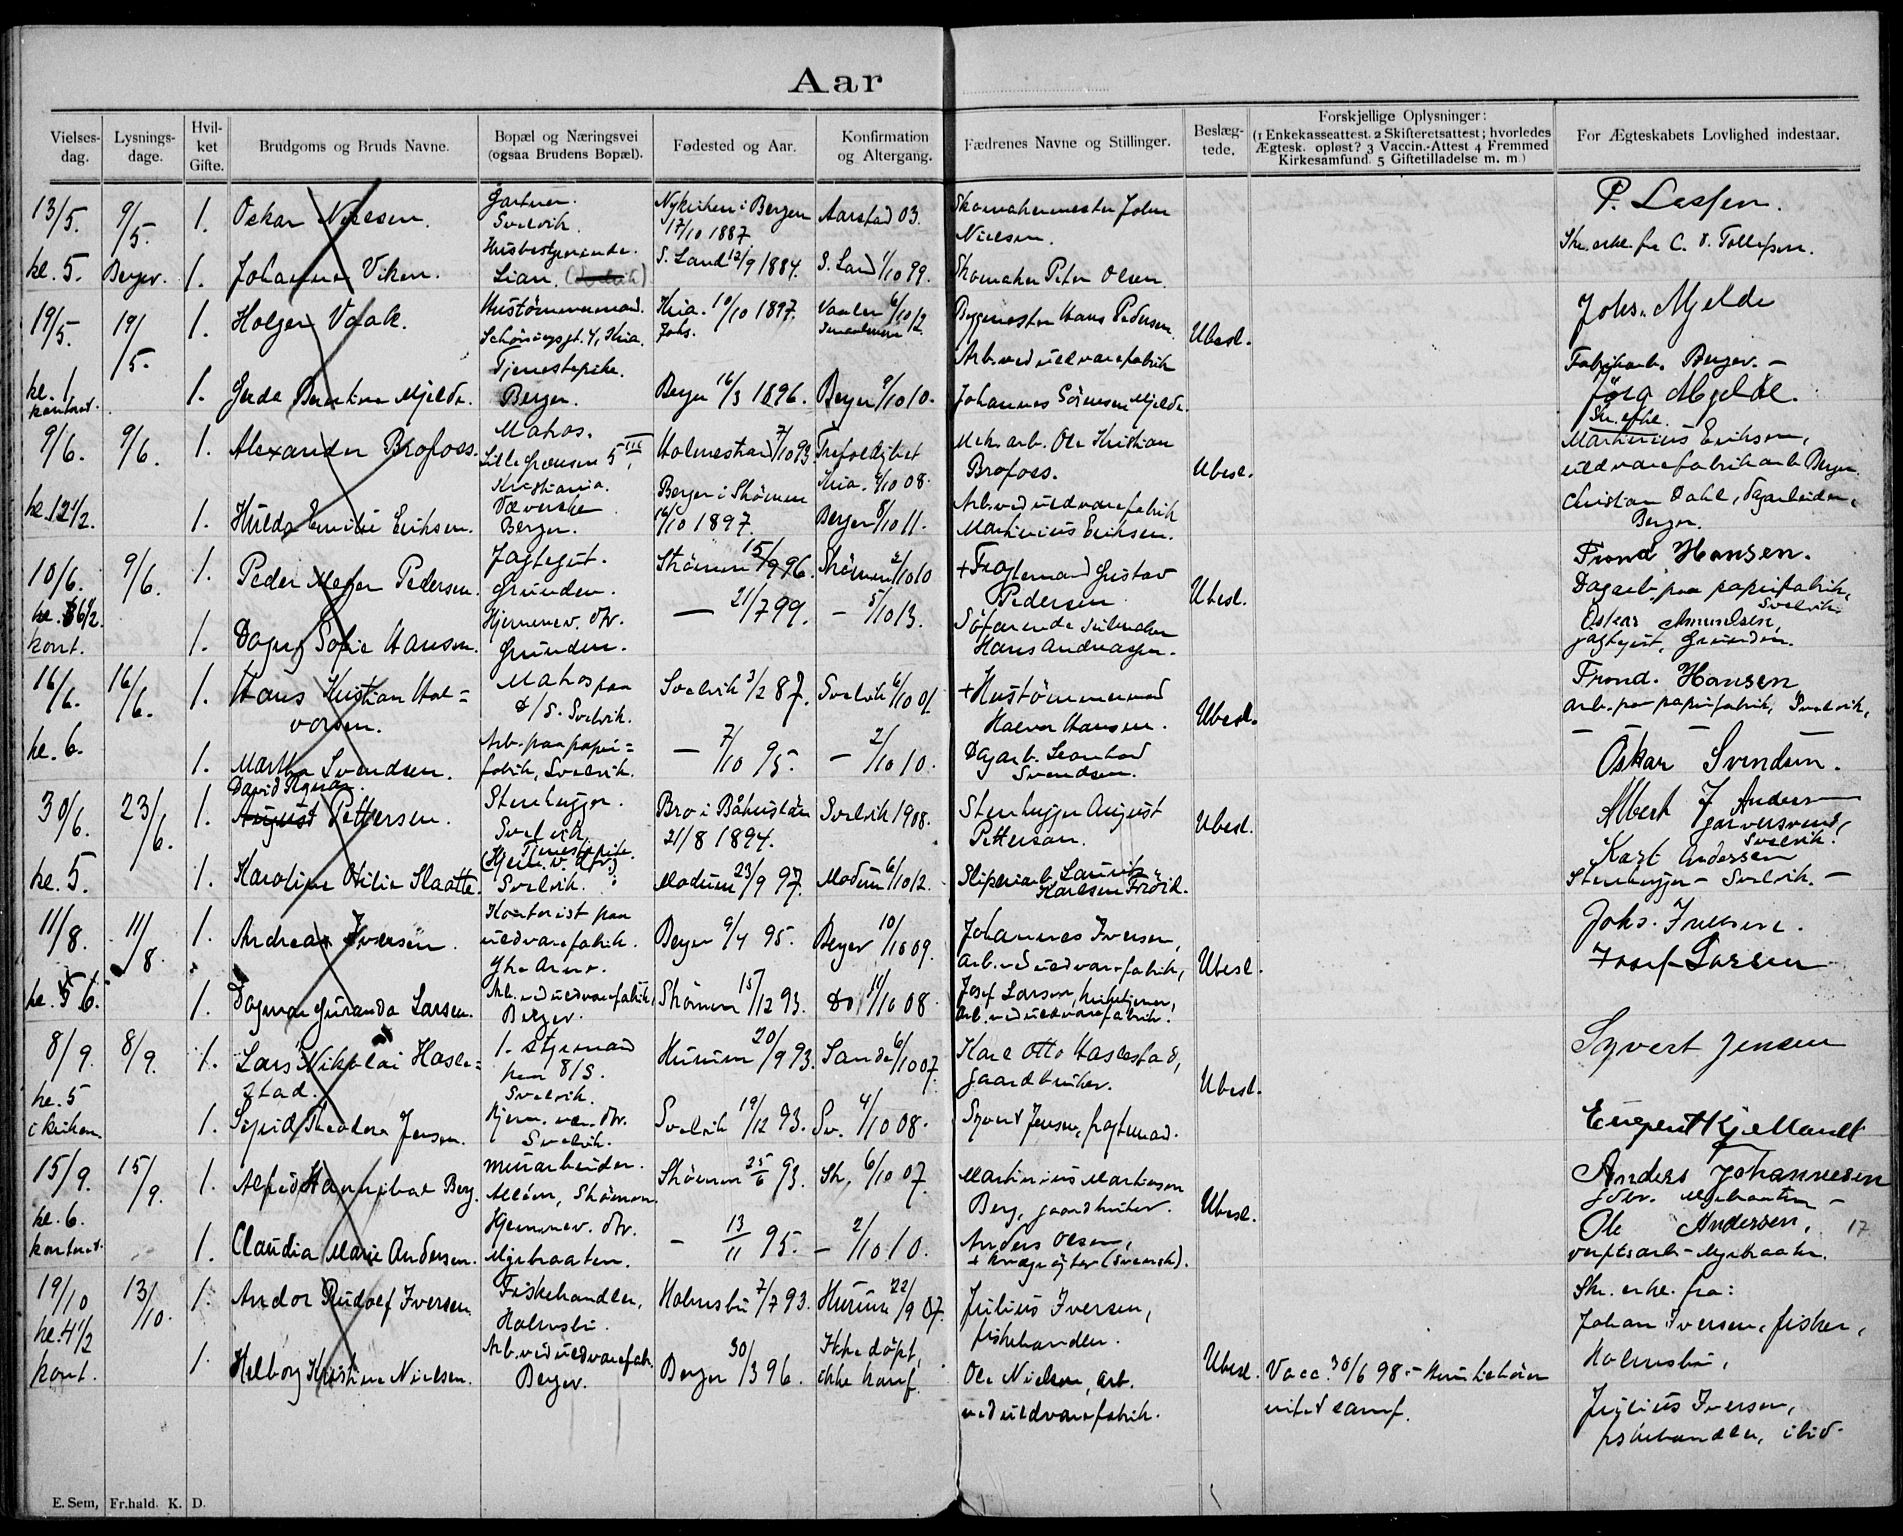 Aar
Vielses-dag. Lysnings-dage. Hvil-ket Gifte. Brudgoms og Bruds Navne. Bopæl og Næringsvei (ogsaa Brudens Bopæl). Fødested og Aar. Konfirmation og Altergang. Fædrenes Navne og Stillinger. Beslæg-tede. Forskjellige Oplysninger: (1 Enkekasseattest. 2 Skifteretsattest; hvorledes Ægtesk. opløst? 3 Vaccin.-Attest 4 Fremmed Kirkesamfund. 5 Giftetilladelse m. m) For Ægteskabets Lovlighed indestaar.
13/5. 9/5. 1. Oskar Nielsen. Gartner. Svelvik. Nykirken i Bergen 17/10 1887 Aarstad 03. Skomakermester John Nielsen. P. Lassen.
Skr. erkl. fra C. O. Tollefsen.
kl. 5. Berger. 1. Johanna Viken. Husbestyrerinde. Lian. S. Land 12/9 1884. S. Land 1/10 99. Skomaker Peter Olsen.
19/5. 19/5. 1. Holger Vaak. Hustømmermand. Schöningsgt. 4, Kria. Kria. 10/10 1897. Johs. Vaaler 6/10 12 Byggmester Hans Pedersen. Ubesl. Johs. Mjelde
Fabrikarb. Berger. -
kl. 1 kontoret. 1. Gerda Berntine Mjelde. Tjenestepike. Berger. Berger 16/3 1896. Berger 9/10 10. Arb. ved uldvarefabrik Johannes Sörensen Mjelde. Jörg Mjelde.
Skr. erkl.
9/6. 9/6. 1. Alexander Brofoss. Matros. Lille Grænsen 5 III, Kristiania. Holmestrand 7/10 93. Trefoldighet Kria. 4/10 08. Mek. arb. Ole Kristian Brofoss. Ubesl. Martinius Eriksen, uldvarefabrikarb. Berger.
kl. 12 1/2. 1. Hulda Emilie Eriksen. Væverske Berger. Berger i Strömm 16/10 1897. Berger 8/10 11. Arb. ved uldvarefabrik Martinius Eriksen. Christian Dahl, Dagarbeider, Berger.
10/6. 9/6. 1. Peder Meyer Pedersen. Jagtegut. Grunden. Strömm 15/9 96. Strömm 2/10 10 + Fragtemand Gustav Pedersen Ubesl. Trond Hansen.
Dagarb. paa papirfabrik, Svelvik.
kl. 6 1/2. kont. 1. Dagny Sofie Hansen. Hjemmev. dtr. Grunden. — 21/7 99. — 5/10 13. Söfarende Hans Andreassen. Oskar Amundsen, jagtegut, Grunden.
16/6. 16/6. 1. Hans Kristian Hal=vorsen. Matros paa D/S. Svelvik. Svelvik 3/2 87. Svelvik 6/10 01. + Hustömmermand Halvor Hansen. Ubesl. Trond. Hansen
Arb. paa papirfabrik, Svelvik.
kl. 6. 1. Martha Svendsen. Arb. paa papir=fabrik, Svelvik. — 7/10 95. — 2/10 10. Dagarb. Leonhard Svendsen. Oskar Svendsen.
30/6. 23/6. 1. David Ragnar August Pettersen. Stenhugger. Svelvik. Bro i Båhuslän 21/8 1894. Svelvik 1908. Stenhugger August Petterson. Ubesl. Albert J Andersen garversvend, Svelvik.
kl. 5. 1. Karoline Otilie Slaatte. Tjenestepike. (Hjem. v. dtr) Svelvik. Modum 23/9 97. Modum 6/10 12. Sliperiarb. Laurits Karlsen Fröid. Karl Andersen Stenhugger - Svelvik. -
11/8. 11/8. 1. Andreas Iversen. Kontorist paa uldvarefabrik. Berger 9/4 95. Berger 10/10 09. Johannes Iversen, Arb. ved uldvarefabrik, Ubesl. Johs. Iversen.
kl. 6. 1. Dagmar Guranda Larsen. Arb. ved uldvarefabrik, Berger. Strömm 15/12 93. Do 11/10 08 Josef Larsen, kirketjener, arb. ved uldvarefabrik. Josef Larsen
8/9. 8/9. 1. Lars Nikolai Hasle=stad. 1. styrmand paa S/S. Svelvik. Hurum 20/9 93. Sande 6/10 07. Karl Otto Haslestad, gaardbruker. Ubesl. Syvert Jensen
kl. 5 i kirken 1. Sigrid Theodora Jensen. Hjem. væ. dtr. Svelvik. Svelvik 19/12 93. Sv. 4/10 08. Syvert Jensen, fragtemand. Eugen Kjelland
15/9. 15/9. 1. Alfred Hannibal Berg. Murarbeider. Strömm. Strömm 25/6 93. Str. 6/10 07. Martinius Martinsen Berg, gaardbruker. Ubesl. Anders Johannesen
kl. 6. kontoret. 1. Claudia Marie Andersen. Hjemmev. dtr. Myrbraaten. — 13/11 95. — 2/10 10. Anders Olsen, (Svensk). Ole Andersen, 17
verftsarb - Myrbraaten.
19/10 13/10. 1. Andor Rudolf Iversen. Fiskehandler, Holmsbu. Holmsbu 7/7 93. Hurum 22/9 07. Julius Iversen, fiskehandler. Skr. erkl. fra:
Johan Iversen, fisker, Holmsbu,
kl. 4 1/2 kont. 1. Helborg Kristine Nielsen. Arb. ved uldvarefab. Berger. Berger 30/3 96. Ikke döpt, ikke konf. Ole Nielsen, arb. ved uldvarefabrik. Ubesl. Vacc. 30/6 98. -
Julius Iversen, fiskehandler, ibid.
E. Sem, Fr.hald. K. D.